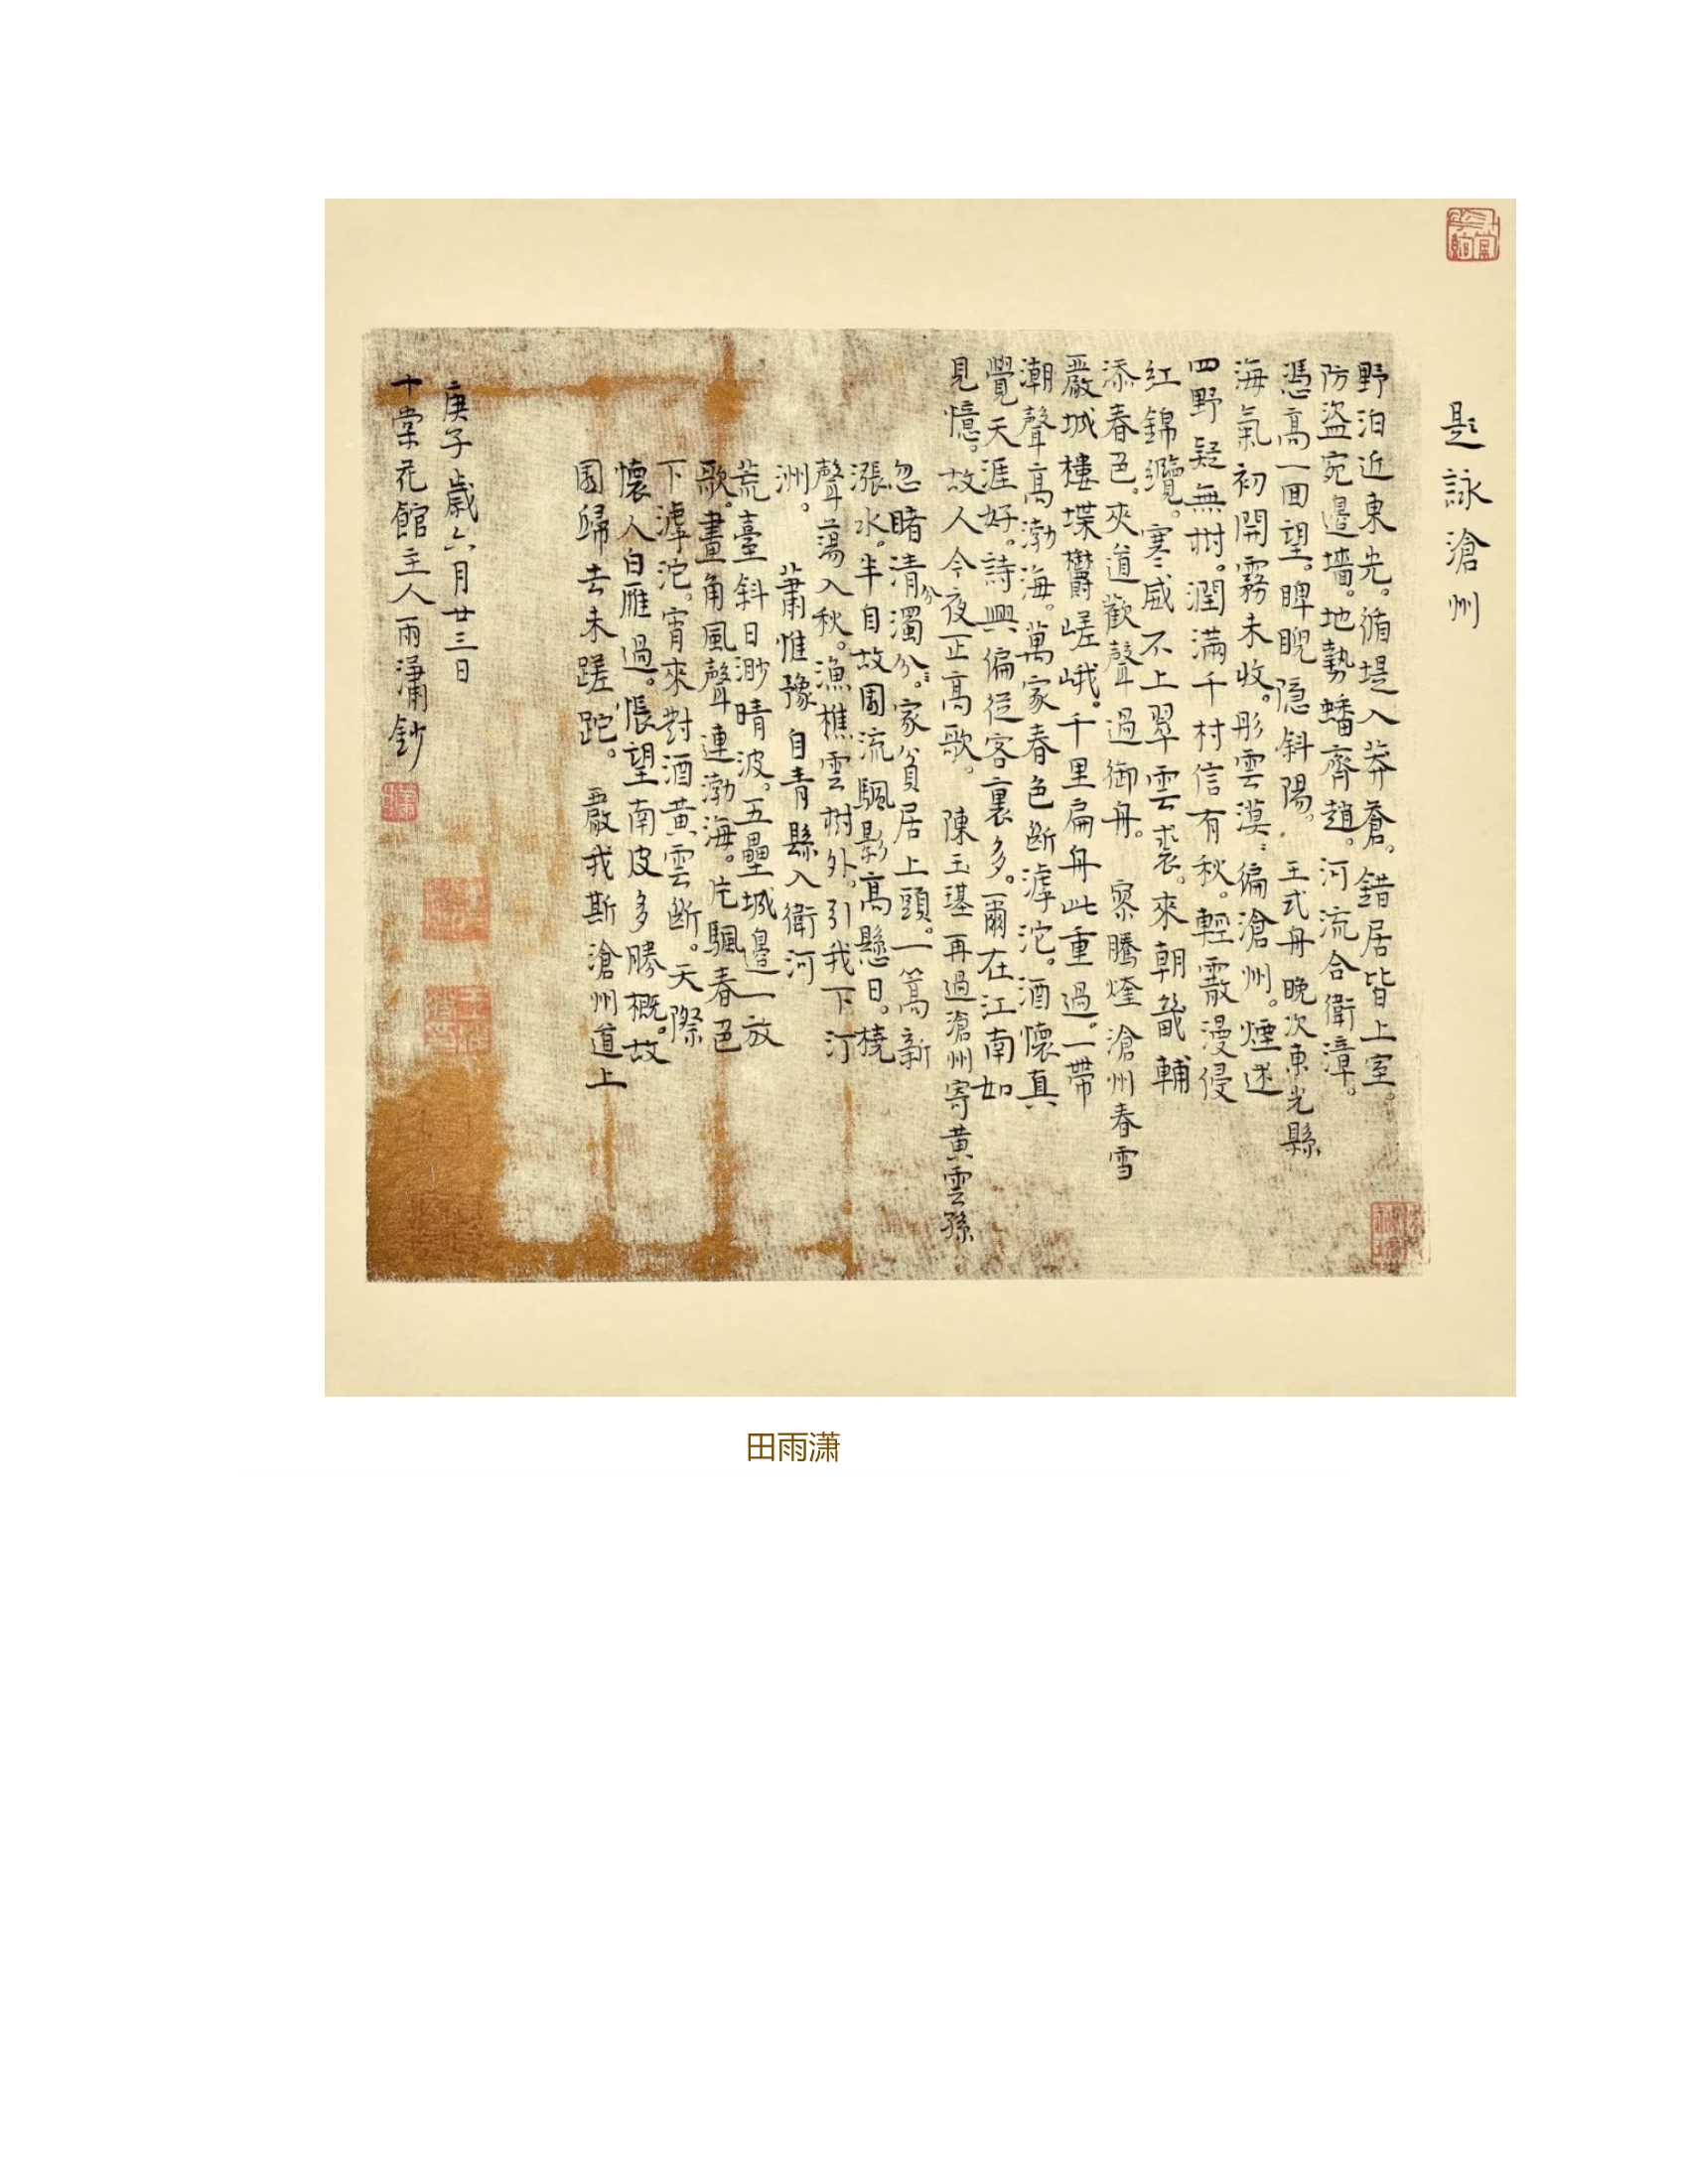 題詠滄州
野泊近東光。循堤入莽蒼。錯居皆上室。
防盜宛邊墻。地勢蟠齊趙。河流合衛漳。
憑高一回望。睥睨隐斜陽。王式丹晚次東光縣
海氣初開霧未收。彤雲漠〻徧滄州。煙迷
四野疑無樹。潤滿千村信有秋。輕霰漫侵
紅錦纜。寒威不上翠雲裘。來朝畿輔
添春色。夾道歡聲過御舟。 察騰煃滄州春雪
嚴城樓堞欝嵯峨。千里扁舟此重過。一帶
潮聲高渤海。萬家春色斷滹沱。酒懷真
覺天涯好。詩興偏從客裏多。爾在江南如
見憶。故人今夜正高歌。 陳玉璂再過滄州寄黃雲孫
忽睹清濁分〻。家貧居上頭。一篙新
漲水。半自故園流。颿影高懸日。橈
聲蕩入秋。漁樵雲樹外。引我下汀
洲。 蕭惟豫自青縣入衛河
荒臺斜日渺晴波。五壘城邊一放
歌。畫角風聲連渤海。片颿春色
下滹沱。宵來對酒黃雲斷。天際
懷人白雁過。悵望南皮多勝概。故
園歸去未蹉跎。 嚴我斯滄州道上
庚子歲六月廿三日
十棠花館主人雨瀟鈔
田雨潇